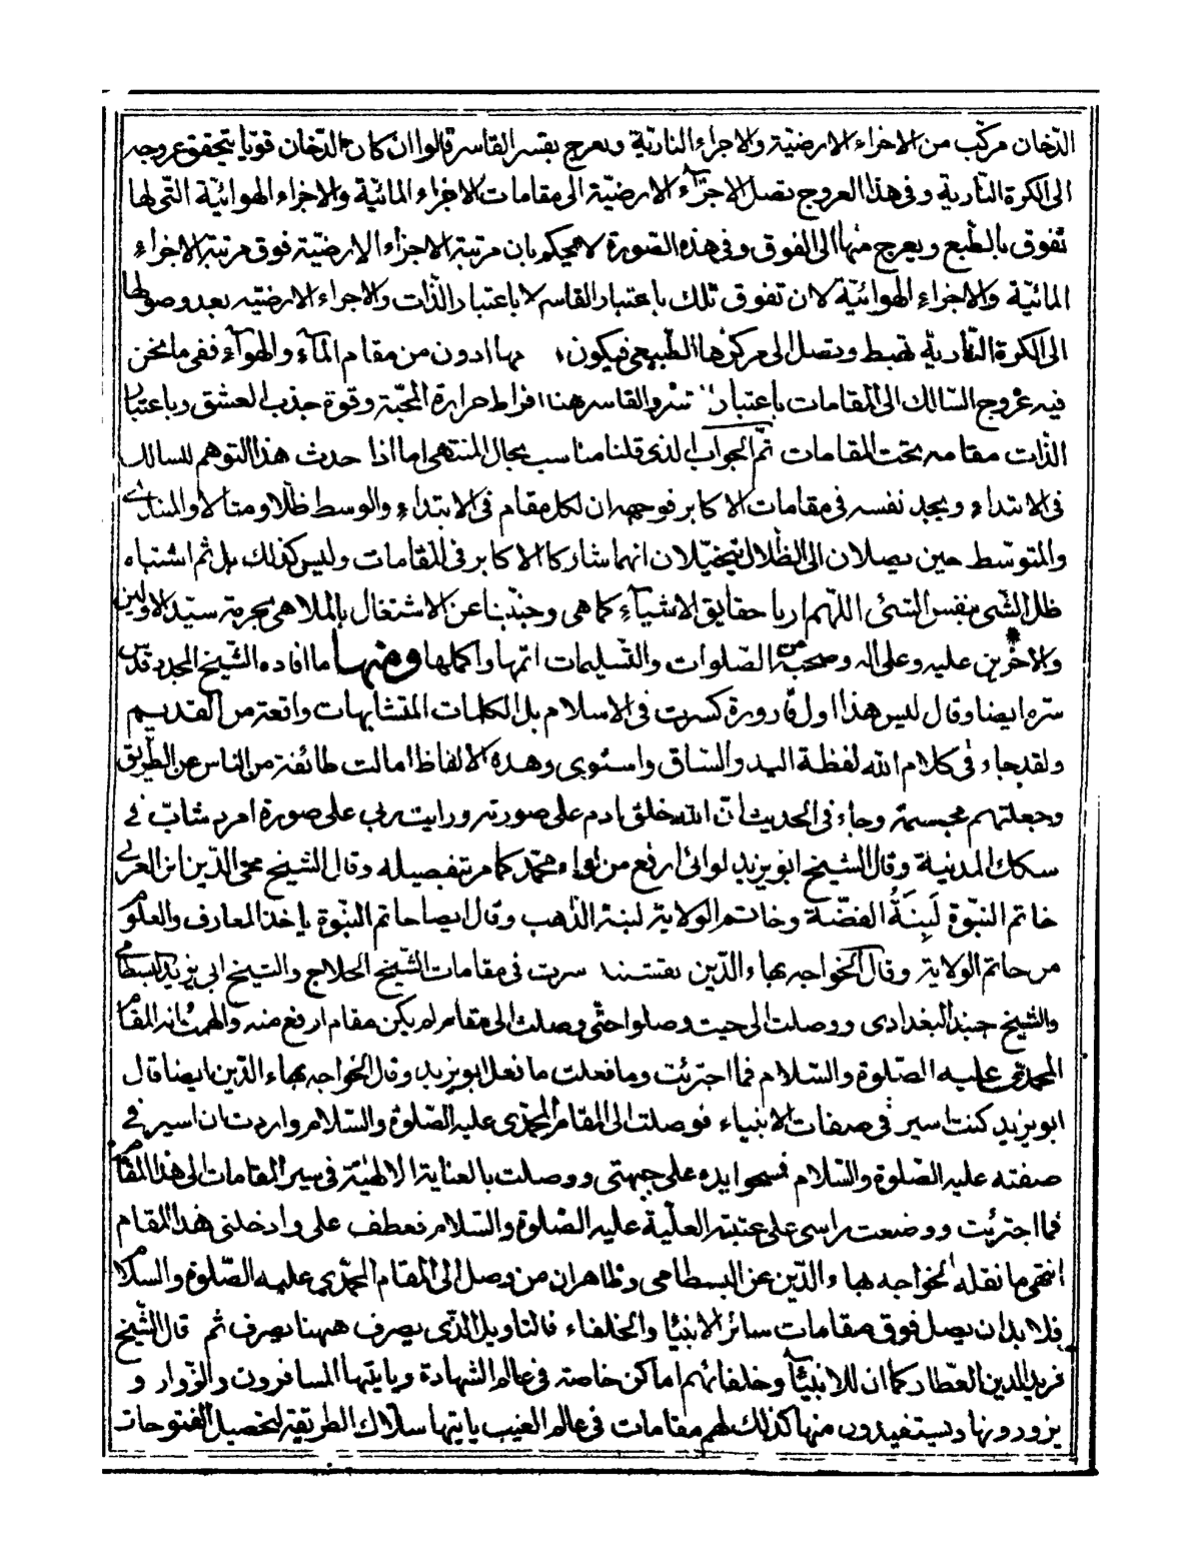 الدّخان مركّب من الاجزاء الارضيّة والاجزاء الناريّة ويعرج بقسر القاسر قالوا ان كان الدّخان قويّا يتحقق عروجه
الى الكرة النّارية وفى هذا العروج تصل الاجزآء الارضيّة الى مقامات الاجزاء المائيّة والاجزاء الهوائيّة التى لها
تفوق بالطّبع ويعرج منها الى الفوق وفى هذه الصّورة لا يحكم بان مرتبة الاجزاء الارضيّة فوق مرتبة الاجزاء
المائيّة والاجزاء الهوائيّة لان تفوق تلك باعتبار القاسر لا باعتبار الذّات والاجزاء الارضيّه بعد وصولها
الى الكرة النّارية تهبط وتصل الى مركزها الطّبيعى فيكون مها ادون من مقام المآء والهوآء ففى ما نحن
فيه عروج السّالك الى المقامات باعتبار والقاسر هنا افراط حرارة المحبّة وقوة جذب العشق وباعتبار
الذّات مقامه تحت المقامات ثمّ الجواب الذى قلنا مناسب بحال المنتهى اما اذا حدث هذا التوهم للسالك
فى الابتداء ويجد نفسه فى مقامات الاكابر فوجهه ان لكل مقام فى الابتداء والوسط ظلا ومثالا والمبتدى
والمتوسّط حين يصلان الى الظّلال يتخيّلان انهما شاركا الاكابر فى المقامات وليس كذلك بل ثم اشتباه
ظل الشّى بنفس الشئ اللّهم ارنا حقايق الاشيآء كما هى وجنّبنا عن الاشتغال بالملاهى بحرمة سيّد الاولين
والاخرين عليه وعلى اله وصحبه من الصّلوات والتّسليمات اتمّها واكملها ومنها ما افاده الشّيخ المجدد قدّس
سرّه ايضا وقال ليس هذا اول قارورة كسرت فى الاسلام بل الكلمات المتشابهات واقعة من القديم
ولقد جاء فى كلام الله لفظة اليد والسّاق واستوى وهذه الالفاظ امالت طائفة من الناس عن الطّريق
وجعلتهم مجسمة وجاء فى الحديث انّ الله خلق ادم على صورته ورايت ربى على صورة امرد شابّ فى
سكك المدينة وقال الشّيخ ابو يزيد لوائى ارفع من لواء محمّد كما مر تفصيله وقال الشّيخ محى الدّين ابن العربى
خاتم النبّوة لَبِنَةُ الفضّة وخاتم الولاية لبنة الذّهب وقال ايضا خاتم النبّوة ياخذ المعارف والعلوم
من خاتم الولاية وقال الخواجه بهاء الدّين نقشبند سرت فى مقامات الشّيخ الحلاج والشيخ ابى يزيد البسطامى
والشيخ جنيد البغدادى ووصلت الى حيث وصلوا حتّى وصلت الى مقام لم يكن مقام ارفع منه والهمت انه المقام
المحمدى عليه الصّلوة والسّلام فما اجترئت وما فعلت ما فعل ابو يزيد وقال الخواجه بهاء الدّين ايضا قال
ابو يزيد كنت اسير فى صفات الانبياء فوصلت الى المقام المحمّدى عليه الصّلوة والسّلام واردت ان اسير فى
صفته عليه الصّلوة والسّلام يده على جبهتى ووصلت بالعناية الالهيّة فى سير المقامات الى هذا المقام
فما اجترئت ووضعت راسى على عتبته العليّة عليه الصّلوة والسّلام فعطف على وادخلنى هذا المقام
انتهى ما نقله الخواجه بهاء الدّين عن البسطامى وظاهر ان من وصل الى المقام المحمّدى عليه الصّلوة والسّلام
فلا بد ان يصل فوق مقامات سائر الانبيا والخلفاء فالتاويل الذّى يصرف ههنا يصرف ثم قال الشّيخ
فريد الدين العطار كما ان للانبيآء وخلفائهم اماكن خاصة فى عالم الشهادة وياتيها المسافرون والزّوار و
يزورونها ويستفيدون منها كذلك لهم مقامات فى عالم الغيب ياتيها سلّاك الطريقة لتحصيل الفتوحات